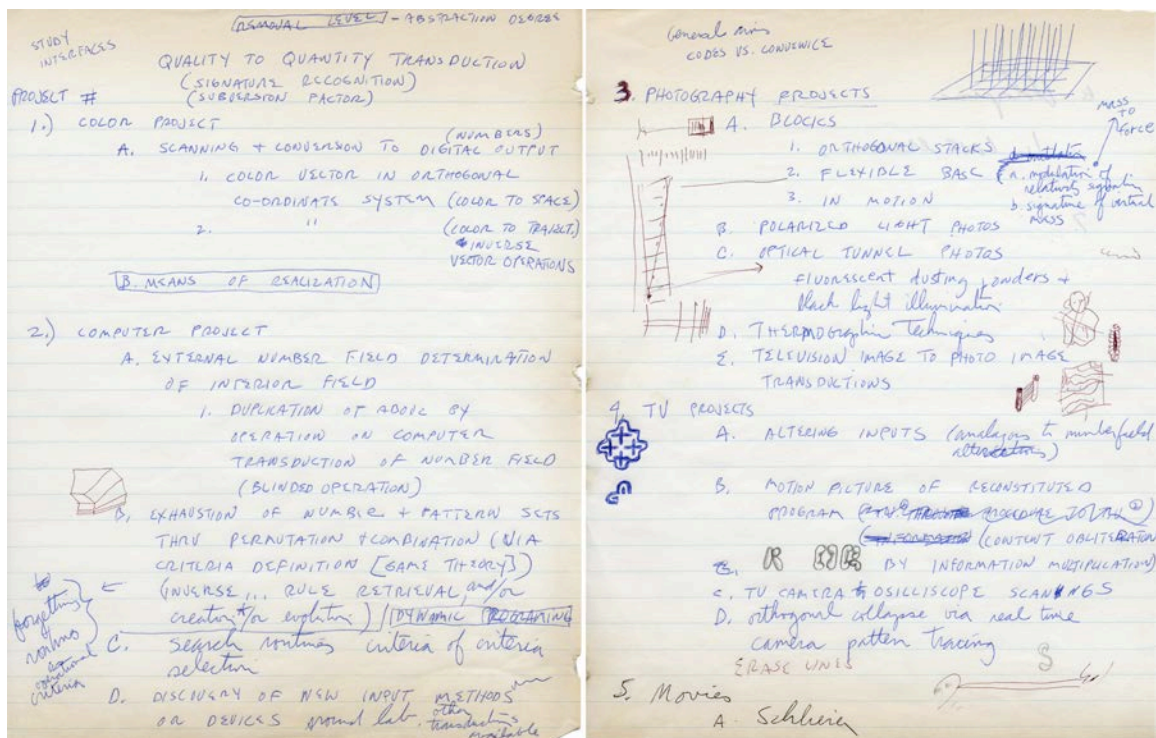 REMOVAL LEVEL - ABSTRACTION DEGREE
STUDY
INTERFACES
QUALITY TO QUANTITY TRANSDUCTION
(SIGNATURE RECOGNITION)
(SUBVERSION FACTOR)
PROJECT #
1.) COLOR PROJECT
(NUMBERS)
A. SCANNING + CONVERSION TO DIGITAL OUTPUT
1. COLOR VECTOR IN ORTHOGONAL
CO-ORDINATE SYSTEM (COLOR TO SPACE)
2. " (COLOR TO TRAJECT.)
INVERSE
VECTOR OPERATIONS
B. MEANS OF REALIZATION
2.) COMPUTER PROJECT
A. EXTERNAL NUMBER FIELD DETERMINATION
OF INTERIOR FIELD
1. DUPLICATION OF ABOVE BY
OPERATION ON COMPUTER
TRANSDUCTION OF NUMBER FIELD
(BLINDED OPERATION)
B. EXHAUSTION OF NUMBER + PATTERN SETS
THRU PERMUTATION + COMBINATION (VIA
CRITERIA DEFINITION [GAME THEORY])
(INVERSE ... RULE RETRIEVAL and/or
creation +/or evolution) / DYNAMIC PROGRAMING
forgetting
norms
as
operational
criteria
C. Search routines criteria of criteria
selection
D. DISCOVERY OF NEW INPUT METHODS
OR DEVICES around lab. other
transductions
available
General aims
CODES VS.
3. PHOTOGRAPHY PROJECTS
MASS
TO
force
A. BLOCKS
1. ORTHOGONAL STACKS
2. FLEXIBLE BASE (a. modulation of
relatively
b. signature of virtual
mass
3. IN MOTION
B. POLARIZED LIGHT PHOTOS
C. OPTICAL TUNNEL PHOTOS
fluorescent dusting powders +
black light illumination
D. THERMOGRAPHIC Techniques
E. TELEVISION IMAGE TO PHOTO IMAGE
TRANSDUCTIONS
4. TV PROJECTS
A. ALTERING INPUTS (analagous to numberfield
alterations)
B. MOTION PICTURE OF RECONSTITUTED
PROGRAM
(CONTENT OBLITERATION
BY INFORMATION MULTIPLICATION)
C. TV CAMERA OSILLISCOPE SCANNINGS
D. orthogonal collapse via real time
camera pattern tracing
ERASE LINES
5. Movies
A. Schlieren